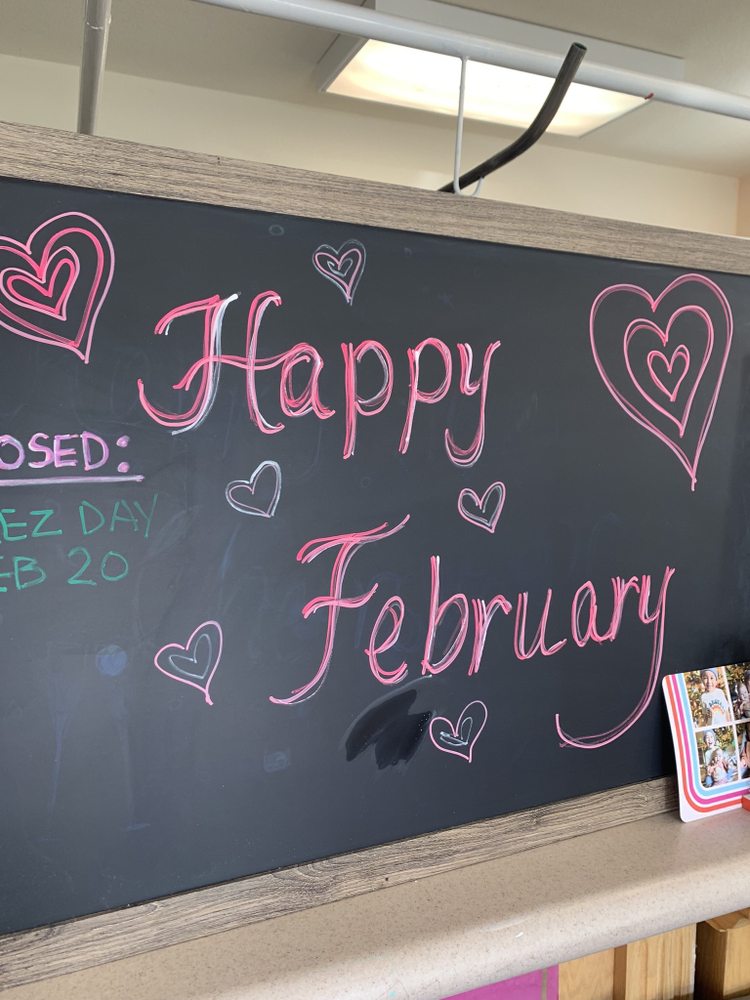 Happy
February
OSED:
EZ DAY
EB 20